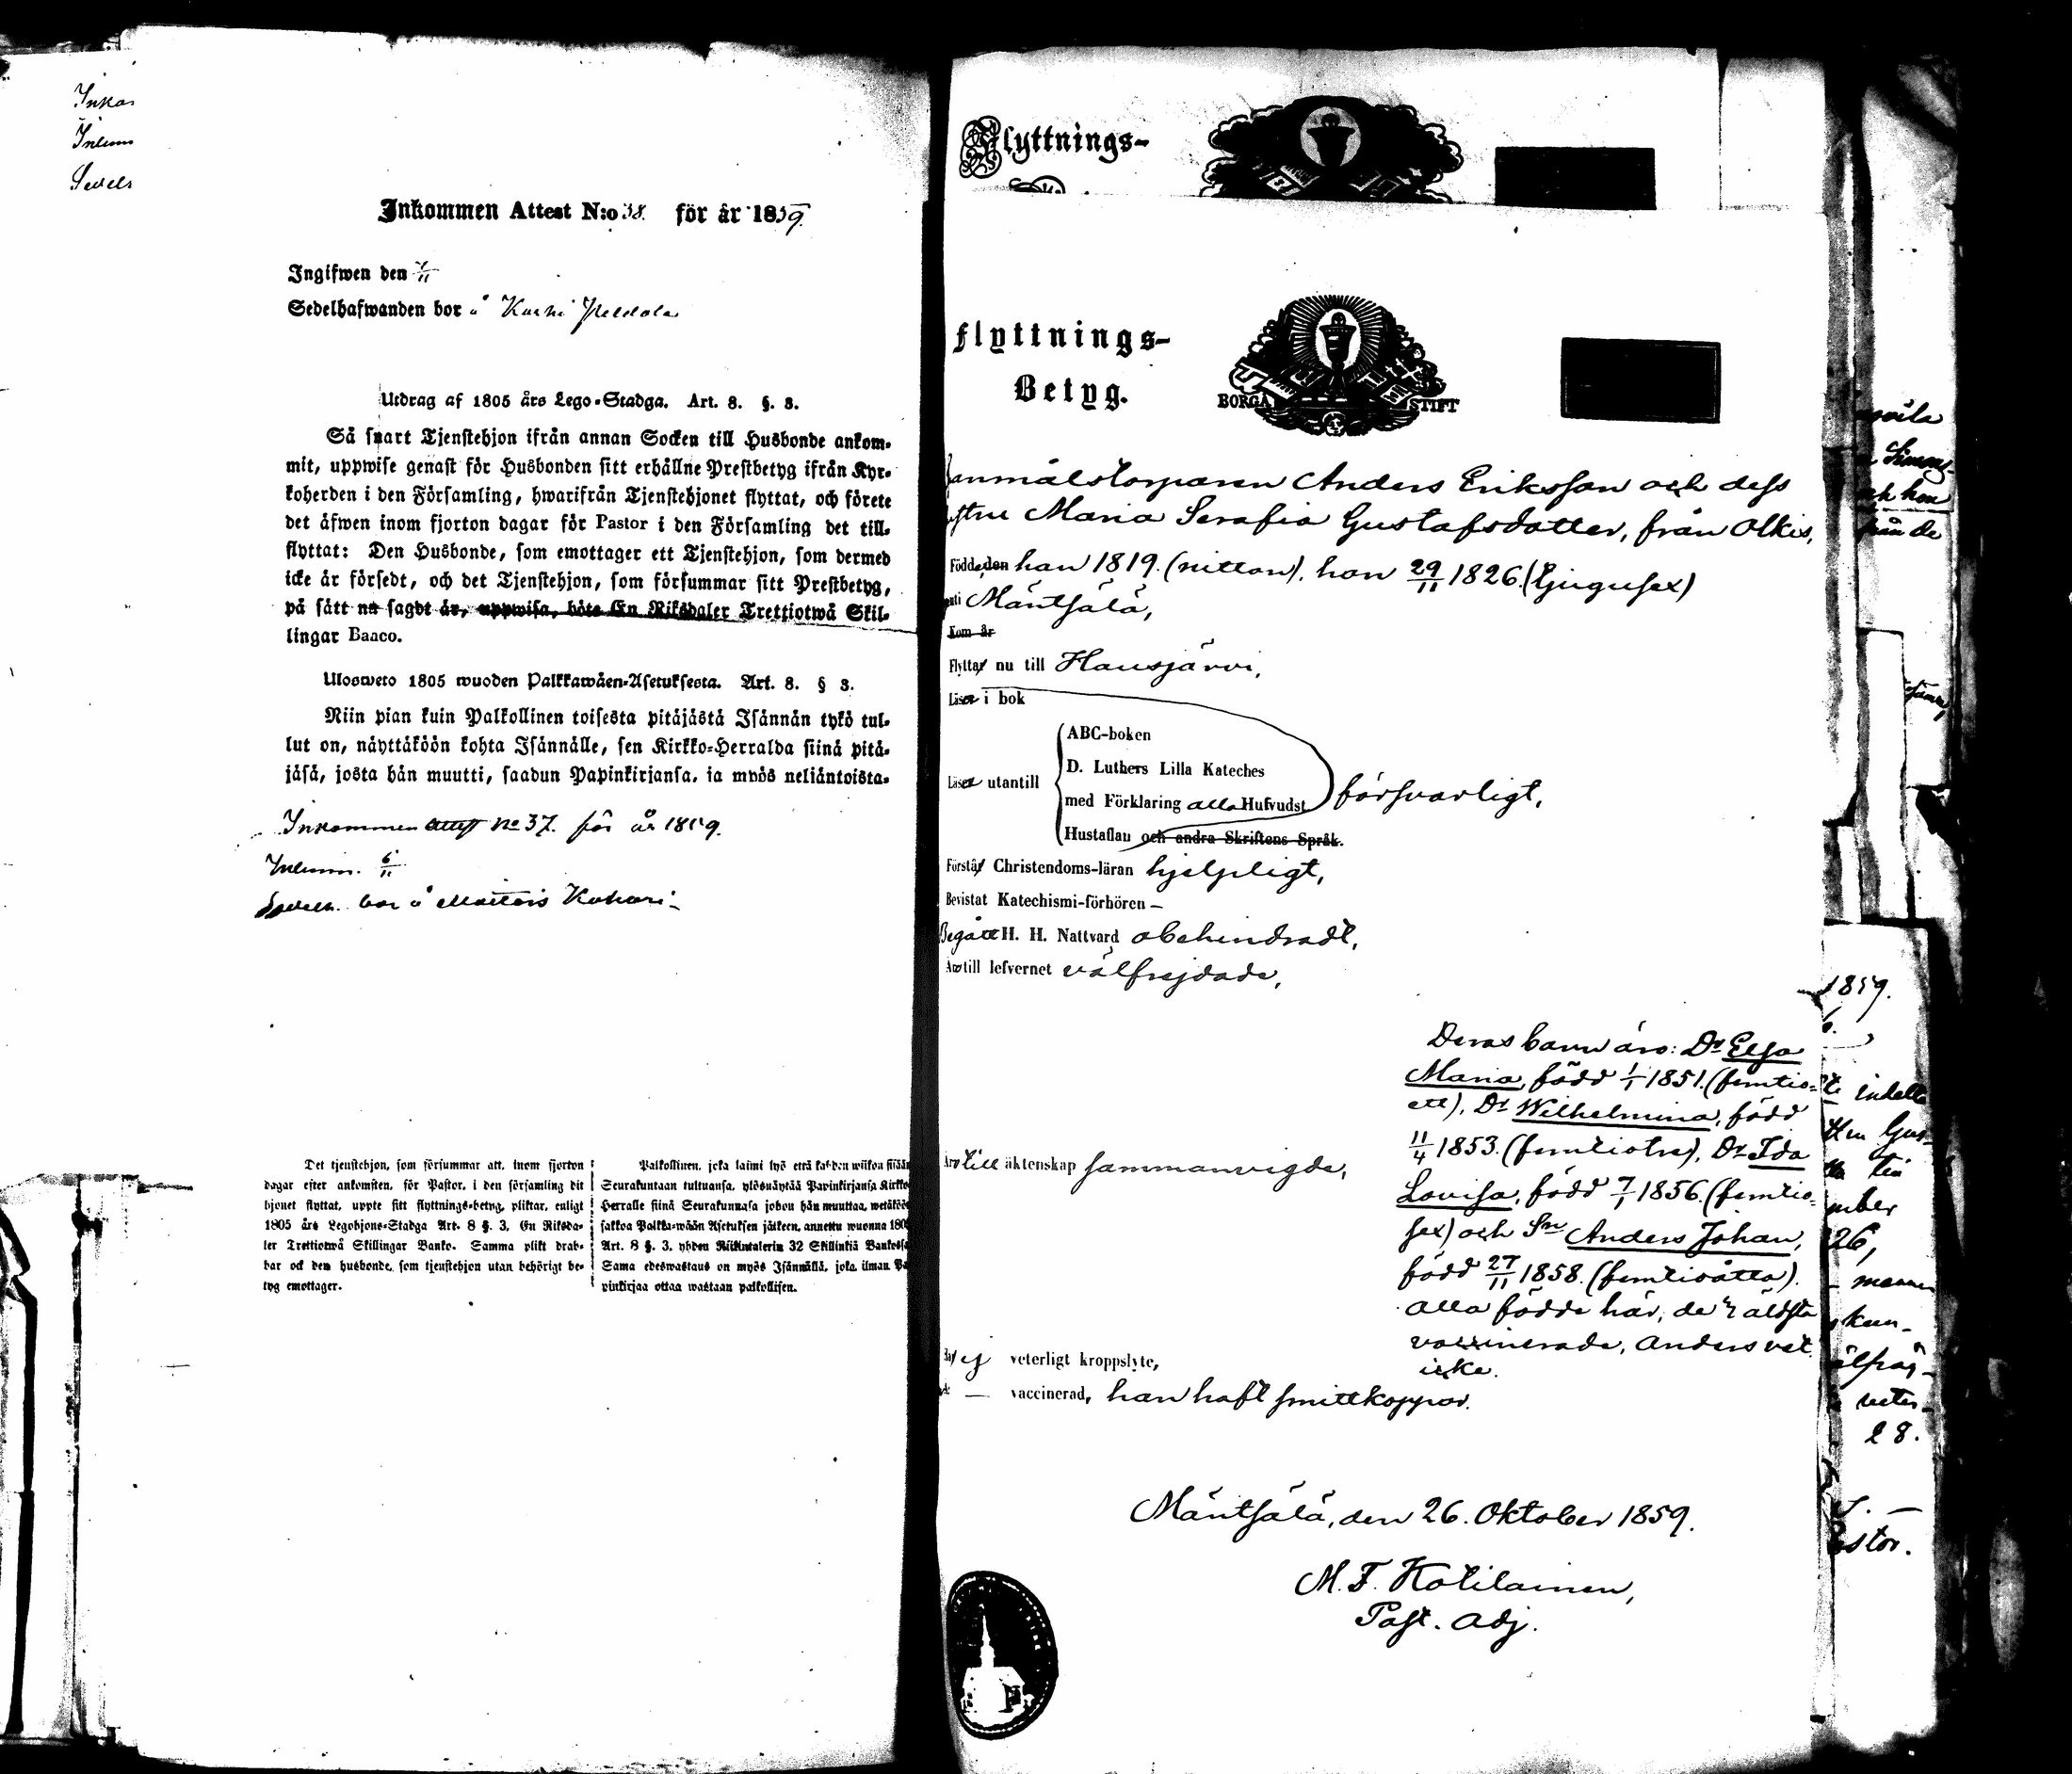 Inkommen Attest N:o 38. för år 1859.
Ingifwen den 7/11
Sedelhafwanden bor å
Utdrag af 1805 års Lego-Stadga. Art. 8. §. 3.
Så snart Tjenstehjon ifrån annan Socken till Husbonde ankom-
mit, uppwise genast för Husbonden sitt erhållne Prestbetyg ifrån Kyr-
koherden i den Församling, hwarifrån Tjenstehjonet flyttat, och förete
det äfwen inom fjorton dagar för Pastor i den Församling det till-
flyttat: Den Husbonde, som emottager ett Tjenstehjon, som dermed
icke är försedt, och det Tjenstehjon, som försummar sitt Prestbetyg,
på sätt nu sagdt är, uppwisa, böte En Riksdaler Trettiotwå Skil-
lingar Banco.
Ulosweto 1805 wuoden Palkkawäen-Asetuksesta. Art. 8. § 3.
Niin pian kuin Palkollinen toisesta pitäjästä Isännän tykö tul-
lut on, näyttäköön kohta Isännälle, sen Kirkko-Herralda siinä pitä-
jäsä, josta hän muutti, saadun Papinkirjansa, ja myös neljäntoista-
Inkommen attest No 37. för år 1859.
Inlemn. 6/11
Sedelh. bor å
Det tjenstehjon, som försummar att, inom fjorton
dagar efter ankomsten, för Pastor, i den församling dit
hjonet flyttat, uppte sitt flyttnings-betyg, pliktar, enligt
1805 års Legohjons-Stadga Art. 8 §. 3, En Riksda-
ler Trettiotwå Skillingar Banko. Samma plikt drab-
bar ock den husbonde, som tjenstehjon utan behörigt be-
tyg emottager.
Palkollinen, joka laimi lyö että kahden wiikon sisään
Seurakuntaan tultuansa, ylösnäyttää Papinkirjansa Kirkko-
Herralle siinä Seurakunnasa johon hän muuttaa, wetäköön
sakkoa Palkka-wään Asetuksen jälkeen, annettu wuonna 1805
Art. 8 §. 3, yhden Riikintalerin 32 Skillinkiä Bankossa
Sama edeswastaus on myös Isännällä, joka ilman Pa-
pinkirjaa ottaa wastaan palkollisen.
Flyttnings-
Flyttnings-
Betyg.
BORGÅ STIFT
Anders Eriksson och dess
Maria Serafia Gustafsdotter, från Olkis,
Födde den han 1819. (nitton), hon 29/11 1826. (tjugusex)
Mäntsälä,
Kom år
Flyttar nu till Hausjärvi,
Läser i bok
Läser utantill
ABC-boken
D. Luthers Lilla Kateches
med Förklaring alla Hufvudst
Hustaflan och andra Skriftens Språk.
försvarligt,
Förstår Christendoms-läran hjelpligt,
Bevistat Katechismi-förhören —
Begått H. H. Nattvard obehindradt,
Äro till lefvernet välfrejdade,
Äro till äktenskap sammanvigde,
Deras barn äro: Dr Elsa
Maria, född 1/1 1851. (femtio-
ett), Dr Wilhelmina, född
11/4 1853. (femtiotre), Dr Ida
Lovisa, född 7/1 1856. (femtio-
sex) och Sn Anders Johan,
född 27/11 1858. (femtioåtta).
alla födde här, de 3 äldsta
vaccinerade, Anders vet.
icke.
ej veterligt kroppslyte,
— vaccinerad, han haft smittkoppor.
Mäntsälä, den 26. Oktober 1859.
M. F. Kotilainen,
Past. Adj.
1859.
26,
28.